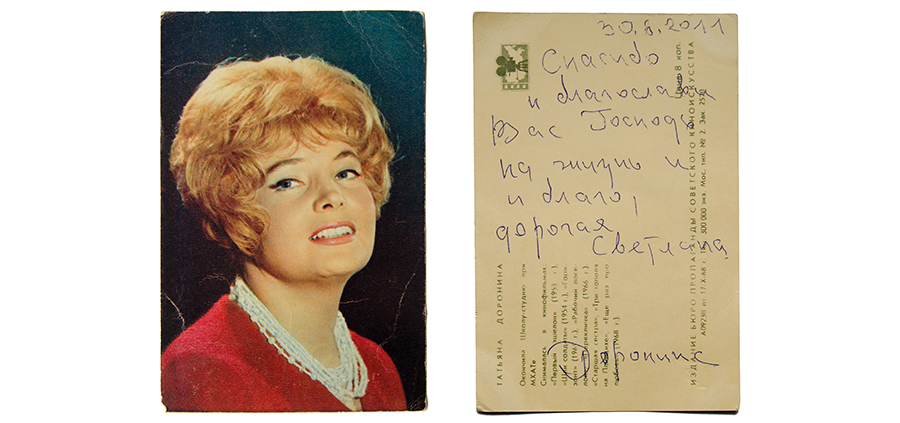 30.8.2011
Спасибо
и благослави
Вас Господь
на жизнь и
и благо,
дорогая
Светлана
Доронина
ТАТЬЯНА ДОРОНИНА
Окончила Школу-студию при
МХАТе
Снималась в кинофильмах:
«Первый эшелон» (1955 г.),
«Старшая сестра», «Три тополя
на Плющихе», «Еще раз про
(1968 г.)
ИЗДАНИЕ БЮРО ПРОПАГАНДЫ СОВЕТСКОГО КИНОИСКУССТВА
А09230 от 17/X-68 г. 300 000 экз. Мос. тип. № 2. Зак.
8 коп.